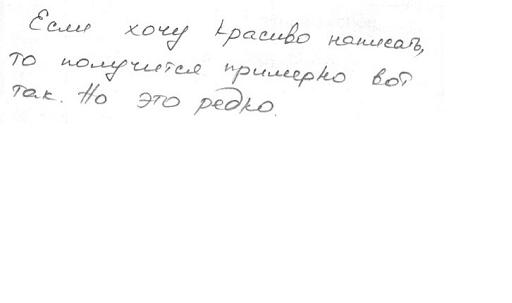 Если хочу красиво написать,
то получится примерно вот
так. Но это редко.